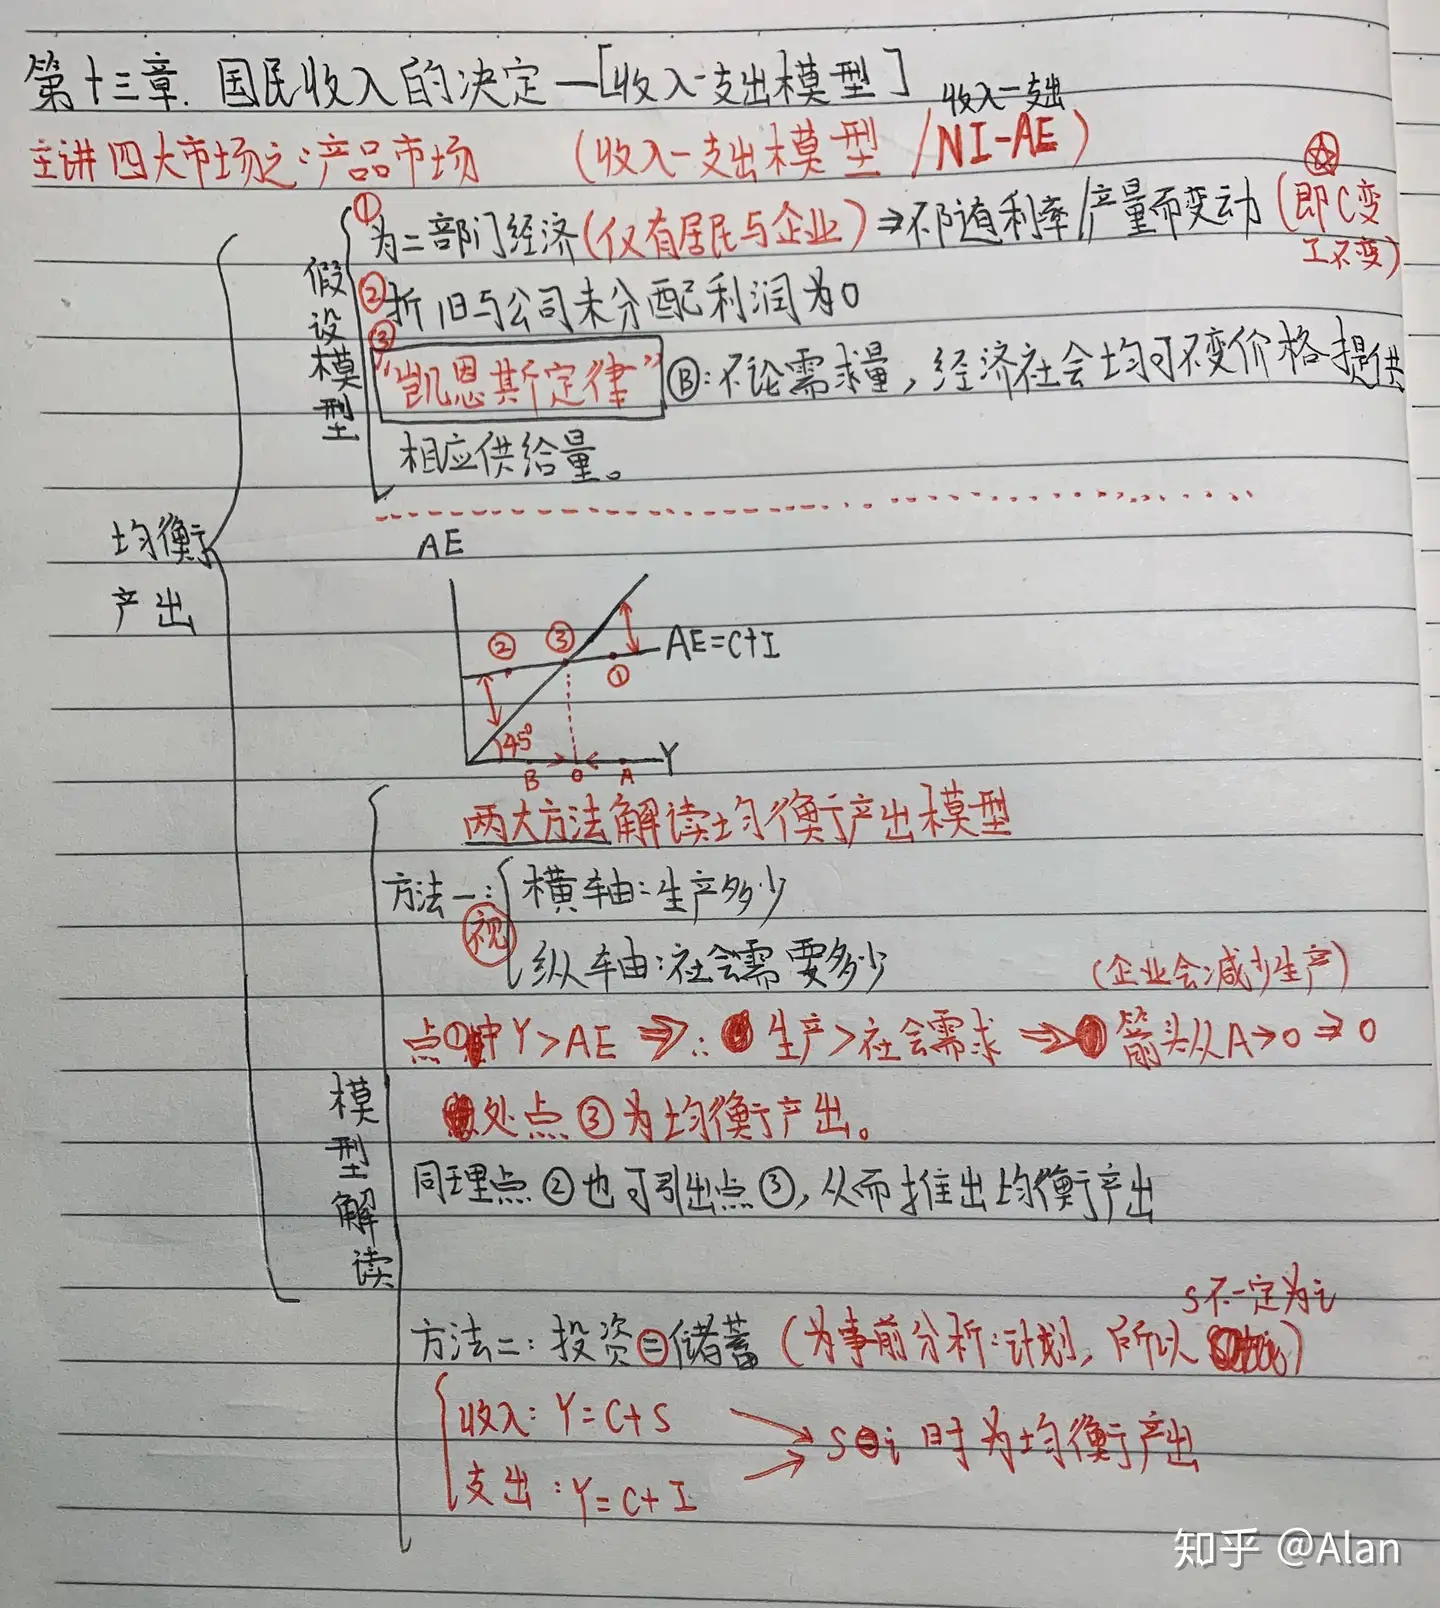 第十三章. 国民收入的决定—[收入-支出模型]
收入-支出
主讲四大市场之:产品市场 (收入-支出模型 / NI-AE)
① 为二部门经济(仅有居民与企业)⇒不随利率/产量而变动(即C变
I不变)
假设模型
② 折旧与公司未分配利润为0
③ "凯恩斯定律" B:不论需求量,经济社会均可不变价格提供
相应供给量。
均衡
产出
AE
② ③ AE=C+I
①
45°
B O A Y
两大方法解读均衡产出模型
方法一: 横轴:生产多少
视
纵轴:社会需要多少
(企业会减少生产)
点①中Y>AE ⇒∴ 生产>社会需求 ⇒ 箭头从A→0⇒0
处点③为均衡产出。
模型解读
同理点②也可引出点③,从而推出均衡产出
S不一定为i
方法二:投资=储蓄(为事前分析:计划,所以 )
收入: Y=C+S
S=i 时为均衡产出
支出:Y=C+I
知乎 @Alan